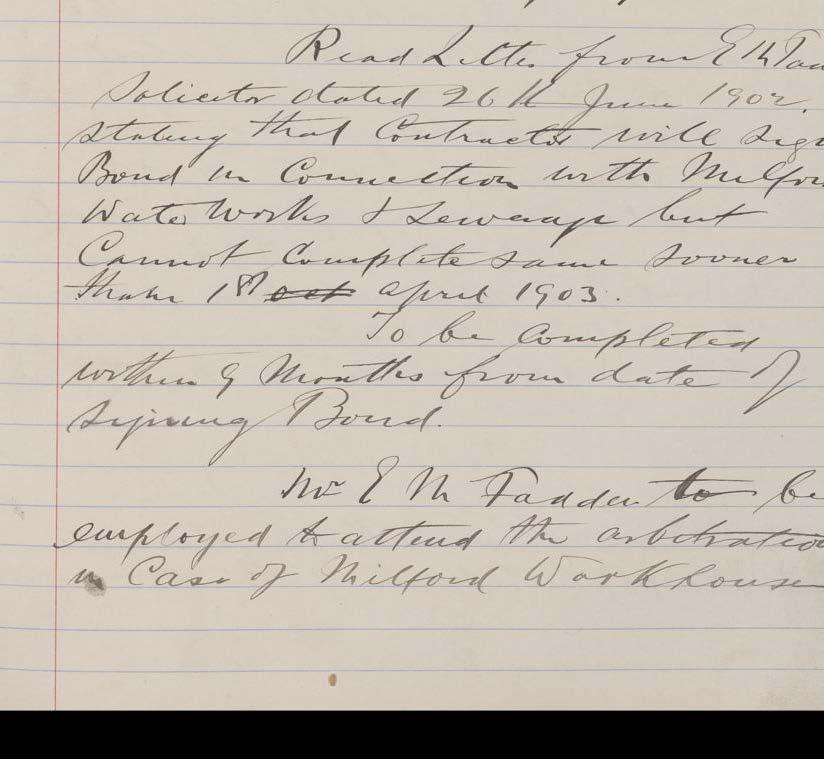 Read Letter from E Mc Fad
Solicitor dated 26th June 1902.
stating that Contractor will sign
Bond in Connection with Milfor
Water Works & Sewerage but
Cannot Complete same sooner
than 1st ~~Oct~~ April 1903.
To be Completed
within 9 Months from date of
signing Bond.
Mr E Mc Fadden to be
employed to attend the arbitration
in Case of Milford Workhouse